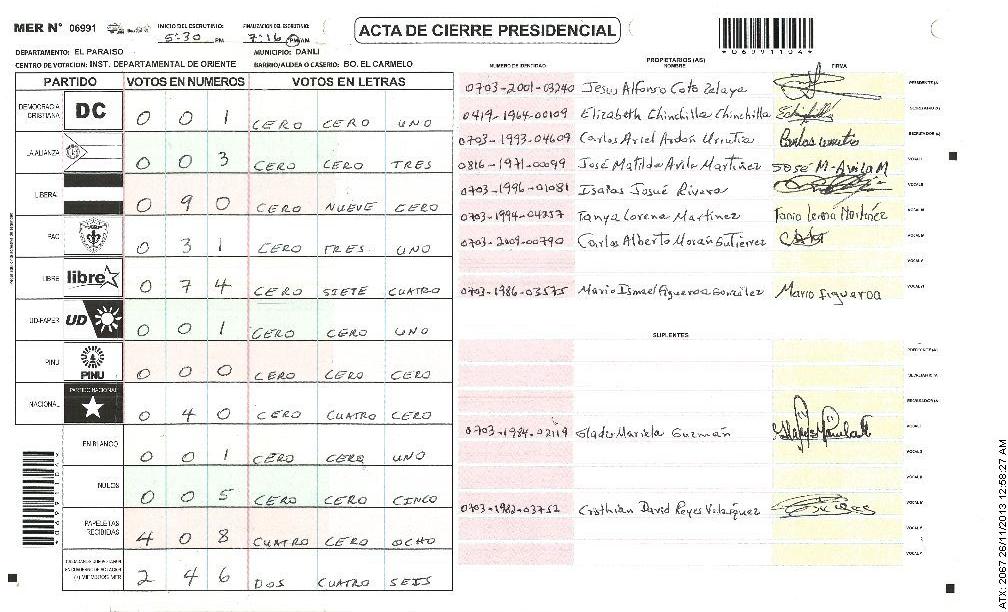 MER N° 06991
INICIO DEL ESCRUTINIO: 5:30 PM
FINALIZACION DEL ESCRUTINIO: 7:16 PM
ACTA DE CIERRE PRESIDENCIAL
*06991104*
DEPARTAMENTO: EL PARAISO
MUNICIPIO: DANLI
CENTRO DE VOTACION: INST. DEPARTAMENTAL DE ORIENTE
BARRIO/ALDEA O CASERIO: BO. EL CARMELO
PARTIDO VOTOS EN NUMEROS VOTOS EN LETRAS
DEMOCRACIA CRISTIANA DC 0 0 1 CERO CERO UNO
LA ALIANZA 0 0 3 CERO CERO TRES
LIBERAL 0 9 0 CERO NUEVE CERO
PAC 0 3 1 CERO TRES UNO
LIBRE libre 0 7 4 CERO SIETE CUATRO
UD-FAPER UD 0 0 1 CERO CERO UNO
PINU PINU 0 0 0 CERO CERO CERO
NACIONAL PARTIDO NACIONAL 0 4 0 CERO CUATRO CERO
EN BLANCO 0 0 1 CERO CERO UNO
NULOS 0 0 5 CERO CERO CINCO
PAPELETAS RECIBIDAS 4 0 8 CUATRO CERO OCHO
(+) MIEMBROS MER 2 4 6 DOS CUATRO SEIS
PROPIETARIOS (AS)
NUMERO DE IDENTIDAD NOMBRE FIRMA
0703-2001-03240 Jesus Alfonso Coto Zelaya PRESIDENTE(A)
0419-1964-00109 Elizabeth Chinchilla Chinchilla SECRETARIO(A)
0703-1993-04609 Carlos Ariel Ardón Urrutia Carlos urrutia ESCRUTADOR(A)
0816-1971-00099 José Matilde Avila Martínez JOSÉ M-AVILA M VOCAL I
0703-1996-01081 Isaías Josué Rivera VOCAL II
0703-1994-04257 Tanya Lorena Martinez Tania Lorena Martínez VOCAL III
0703-2009-00790 Carlos Alberto Morán Gutierrez VOCAL IV
VOCAL V
0703-1986-03575 Mario Ismael Figueroa González Mario Figueroa VOCAL VI
SUPLENTES
PRESIDENTE(A)
SECRETARIO(A)
ESCRUTADOR(A)
0703-1984-02119 Gladis Mariela Guzmán VOCAL I
VOCAL II
VOCAL III
0703-1982-03752 Cristhian David Reyes Velasquez VOCAL IV
VOCAL V
VOCAL VI
ATX: 2067 26/11/2013 12:58:27 AM